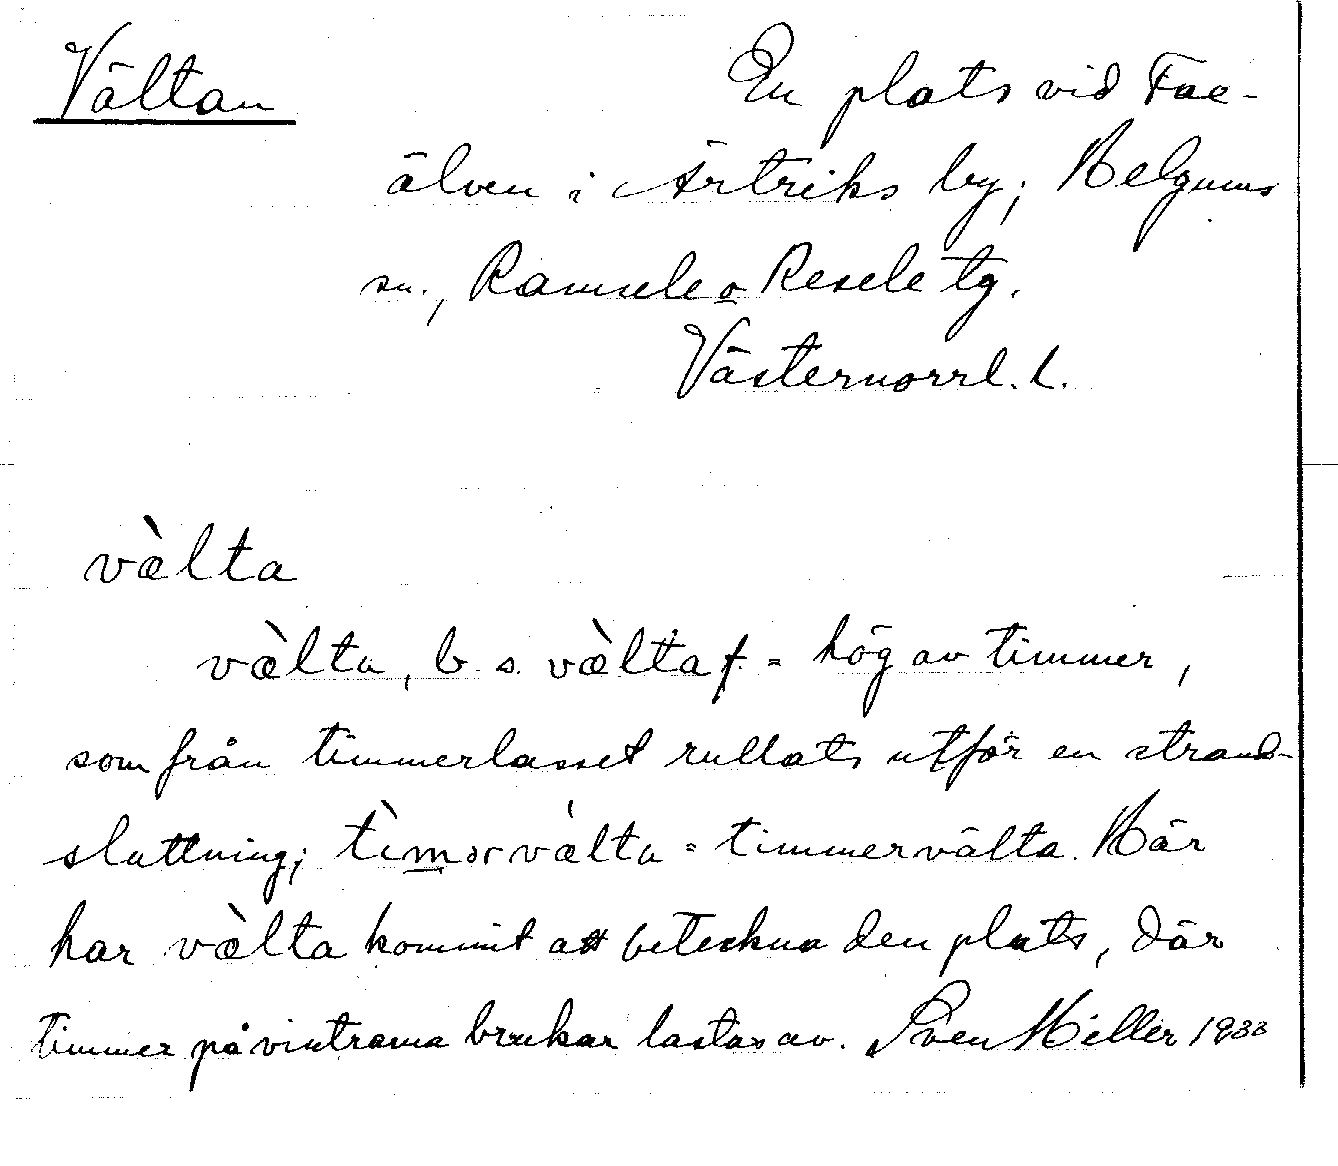 Vältan
En plats vid Fax-
älven i Ärtriks by; Helgums
sn., Ramsele o Resele tg.
Västernorrl. l.
vèlta
vèlta, b. s. vèlta f. = hög av timmer,
som från timmerlasset rullats utför en strand-
sluttning; tìmorvælta = timmervälta. Här
har vèlta kommit att beteckna den plats, där
timmer på vintrarna brukar lastas av. Sven Heller 1933